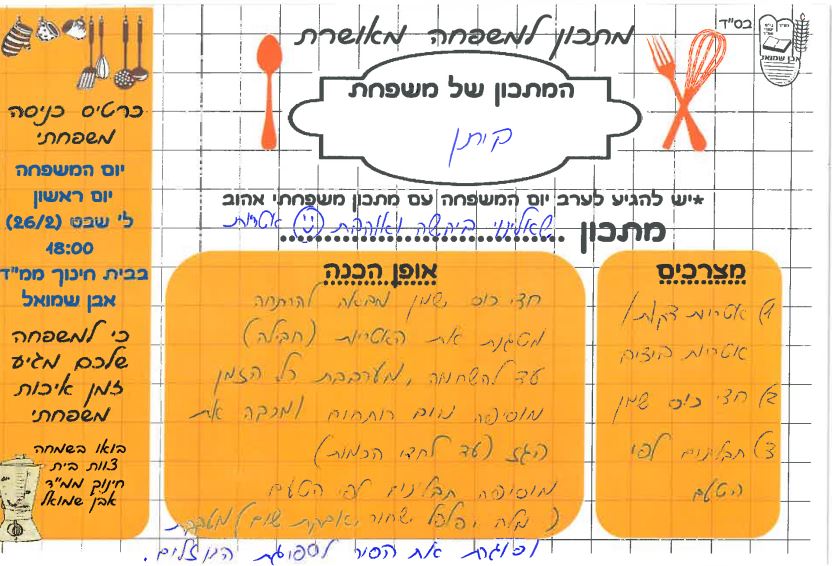 בס"ד
אבן שמואל
מתכון למשפחה מאושרת
המתכון של משפחת
קיתן
*יש להגיע לערב יום המשפחה עם מתכון משפחתי אהוב
מתכון שאלינוי ביקשה ואוהבת אטריות
מצרכים
1) אטריות דקות /
אטריות ביצים
2) חצי כוס שמן
3) תבלינים לפי
הטעם
אופן הכנה
חצי כוס שמן מביאה להרתחה
מטגנת את האטריות (חבילה)
עד להשחמה, מערבבת כל הזמן
מוסיפה מים רותחים ומכבה את
הגז (עד לחצי הכמות)
מוסיפה תבלינים לפי הטעם
(מלח, פלפל שחור, אבקת שום) מערבבת
וסוגרת את הסיר לספיגת הנוזלים.
כרטיס כניסה
משפחתי
יום המשפחה
יום ראשון
ל' שבט (26/2)
18:00
בבית חינוך ממ"ד
אבן שמואל
כי למשפחה
שלכם מגיע
זמן איכות
משפחתי
בואו בשמחה
צוות בית
חינוך ממ"ד
אבן שמואל